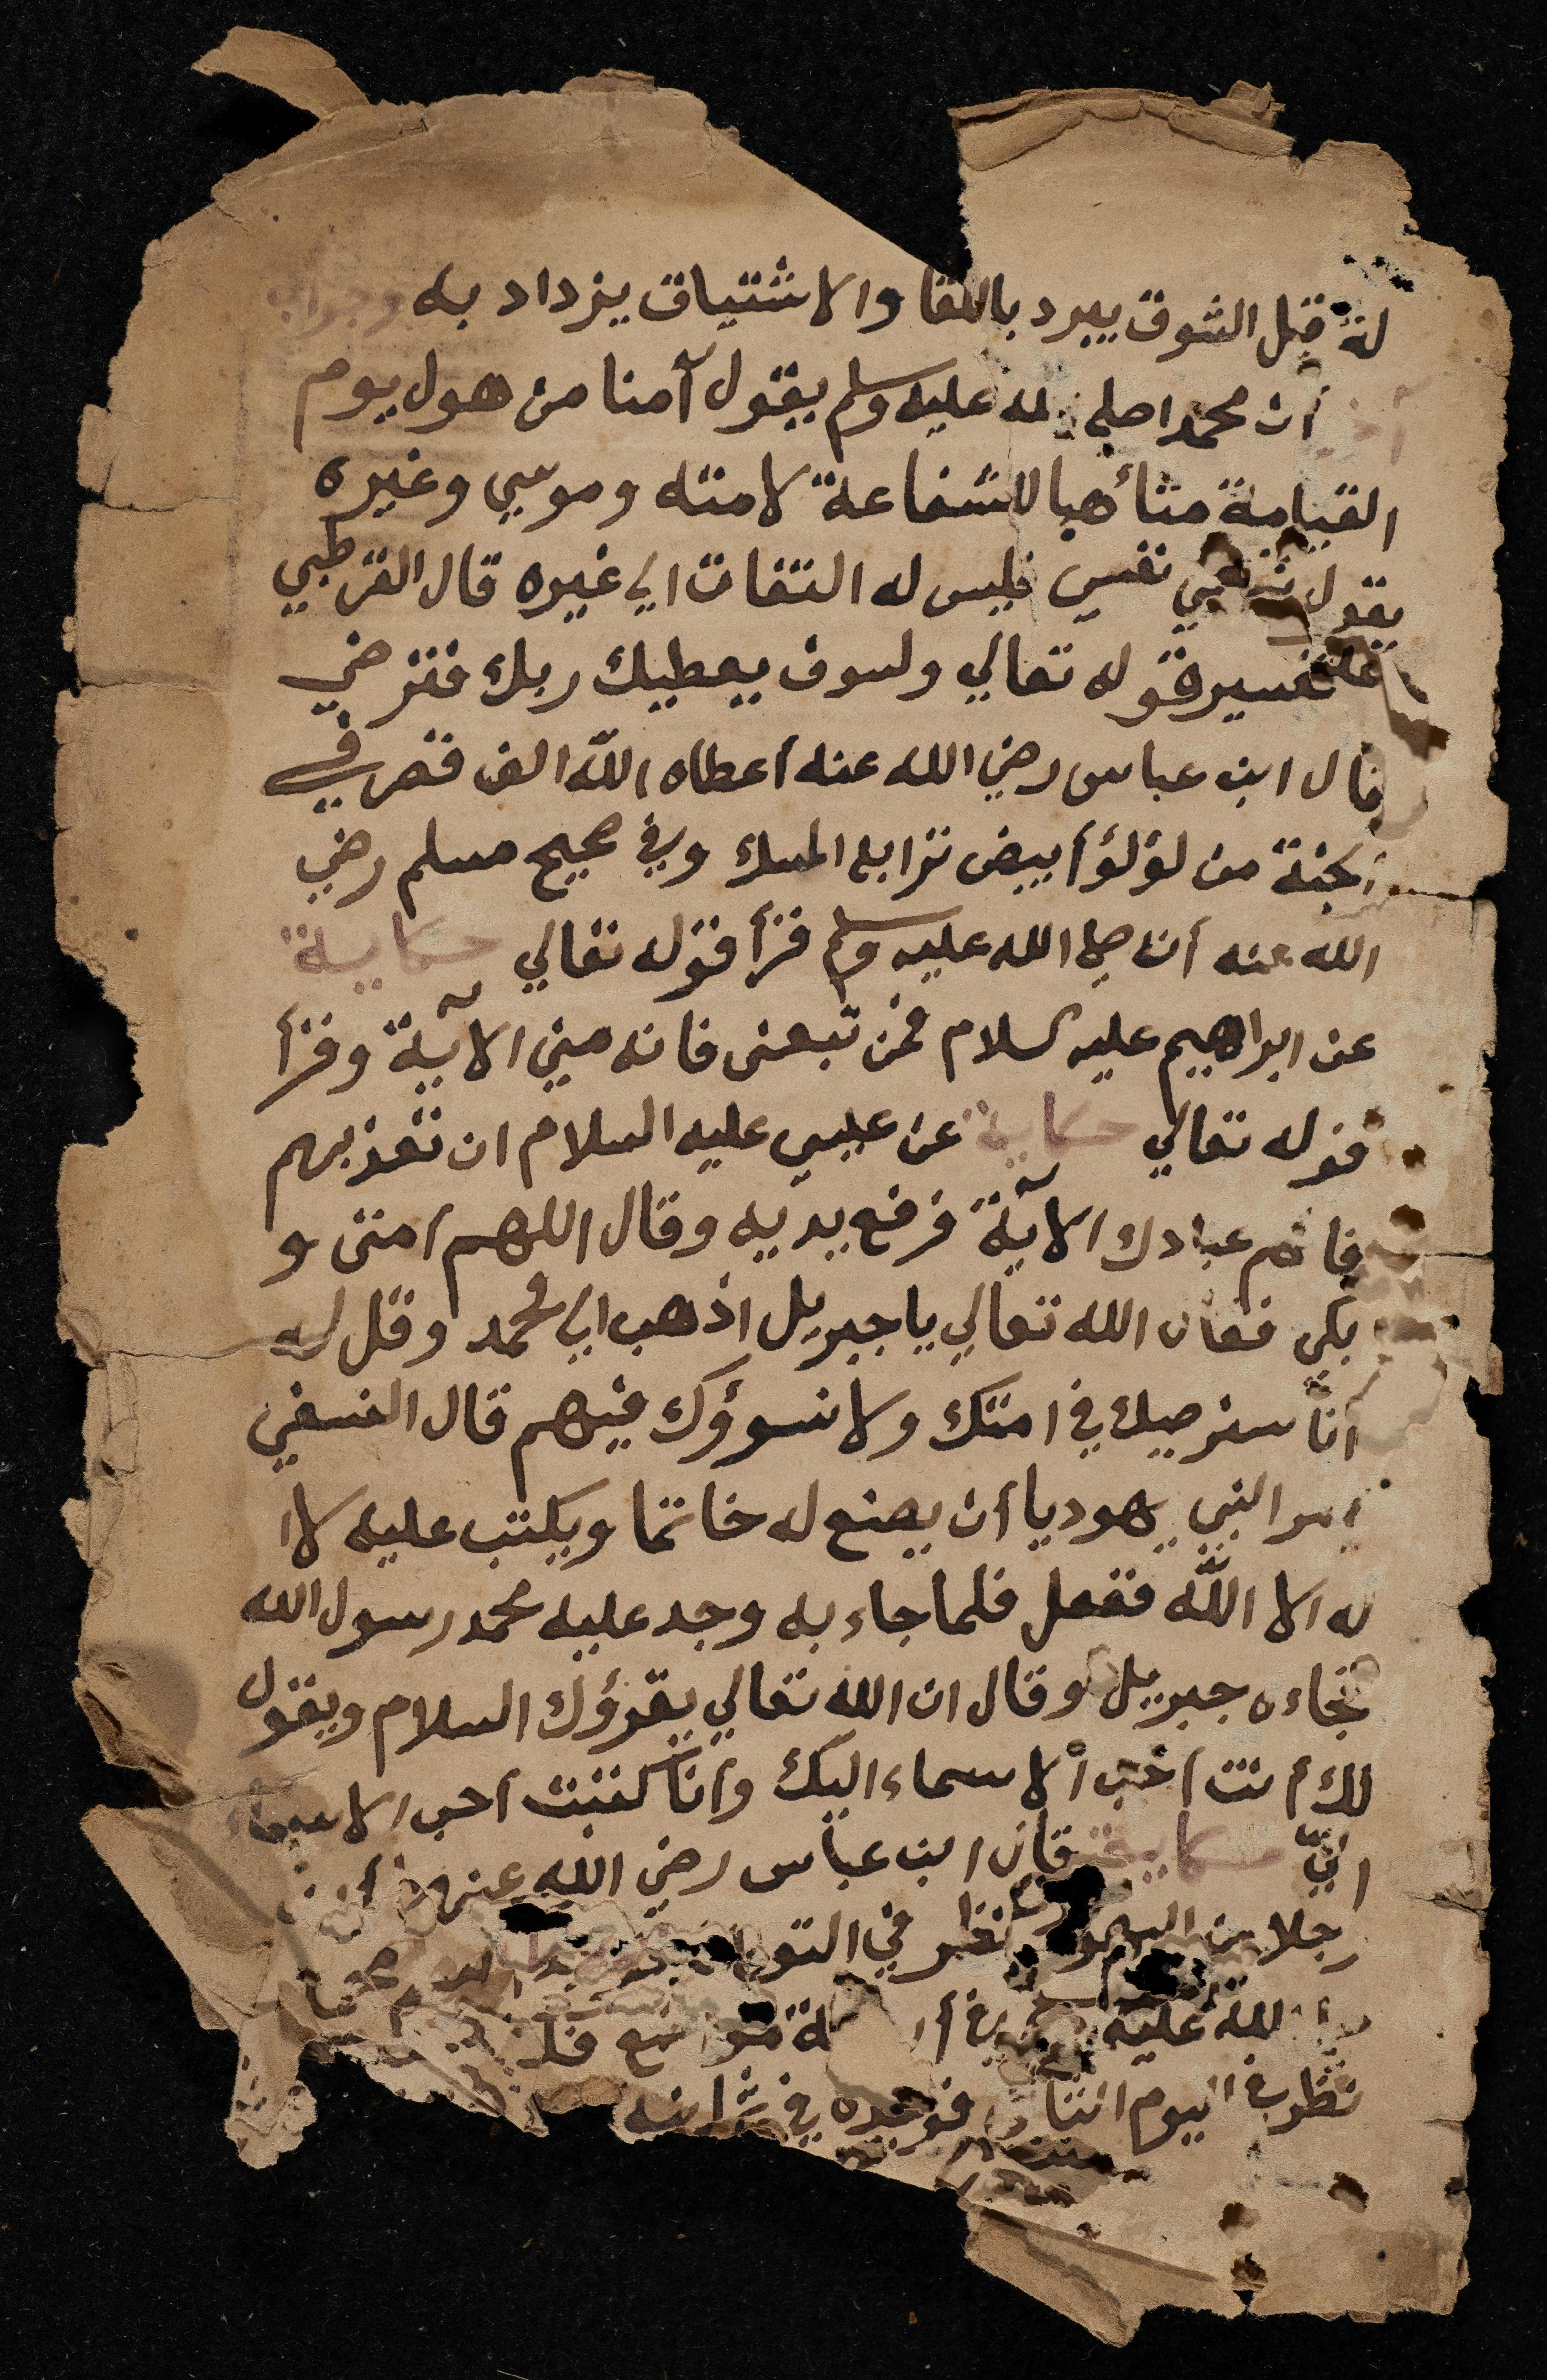 له قيل الشوق يبرد باللقا والاشتياق يزداد به وجواب
آخر أن محمدا صلي الله عليه وسلم يقول آمنا من هول يوم
القيامة متأهبا للشفاعة لامته وموسي وغيره
يقول نفسي نفسي فليس له التفات الي غيره قال القرطبي
تفسير قوله تعالي ولسوف يعطيك ربك فترضي
قال ابن عباس رضي الله عنه أعطاه الله الف قصر في
الجنة من لؤلؤ أبيض ترابه المسك وفي صحيح مسلم رضي
الله عنه أن صلي الله عليه وسلم قرأ قوله تعالي حكاية
عن ابراهيم عليه السلام فمن تبعني فانه مني الآية وقرأ
قوله تعالي حكاية عن عيسي عليه السلام ان تعذبهم
فانهم عبادك الآية فرفع يديه وقال اللهم امتي و
بكي فقال الله تعالي يا جبريل اذهب الي محمد وقل له
أنا سنرضيك في امتك ولا نسوؤك فيهم قال النسفي
امر النبي يهوديا أن يصنع له خاتما ويكتب عليه لا ا
له الا الله ففعل فلما جاء به وجد عليه محمد رسول الله
فجاءه جبريل وقال ان الله تعالي يقرؤك السلام ويقول
لك أنت أحب الاسماء اليك وأنا كتبت أحب الاسماء
اليّ حكاية قال ابن عباس رضي الله عنهما أن
رجلا من اليهود نظر في التوراة
الله عليه في أربعة مواضع
نظر في اليوم الثاني فوجده في ثمانية